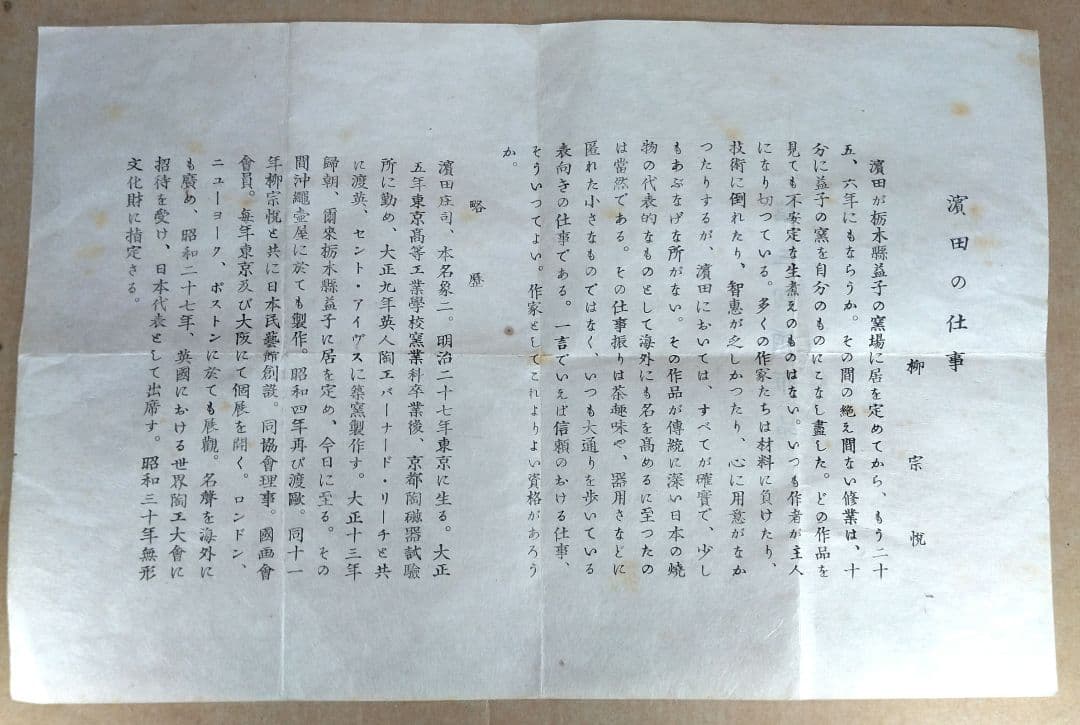 濱田の仕事
柳宗悦
濱田が栃木縣益子の窯場に居を定めてから、もう二十
五、六年にもならうか。その間の絶え間ない修業は、十
分に益子の窯を自分のものにこなし盡した。どの作品を
見ても不安定な生煮えのものはない。いつも作者が主人
になり切つている。多くの作家たちは材料に負けたり、
技術に倒れたり、智惠が乏しかつたり、心に用意がなか
つたりするが、濱田においては、すべてが確實で、少し
もあぶなげな所がない。その作品が傳統に深い日本の燒
物の代表的なものとして海外にも名を高めるに至つたの
は當然である。その仕事振りは茶趣味や、器用さなどに
匿れた小さなものではなく、いつも大通りを歩いている
表向きの仕事である。一言でいえば信頼のおける仕事、
そういつてよい。作家としてこれよりよい資格があろう
か。
略歴
濱田庄司、本名象二。明治二十七年東京に生る。大正
五年東京高等工業學校窯業科卒業後、京都陶磁器試驗
所に勤め、大正九年英人陶工バーナード・リーチと共
に渡英、セント・アイヴスに築窯製作す。大正十三年
歸朝、爾來栃木縣益子に居を定め、今日に至る。その
間沖繩壺屋に於ても製作。昭和四年再び渡歐。同十一
年柳宗悦と共に日本民藝館創設。同協會理事。國画會
會員。毎年東京及び大阪にて個展を開く。ロンドン、
ニューヨーク、ボストンに於ても展觀。名聲を海外に
も廣め、昭和二十七年、英國における世界陶工大會に
招待を受け、日本代表として出席す。昭和三十年無形
文化財に指定さる。